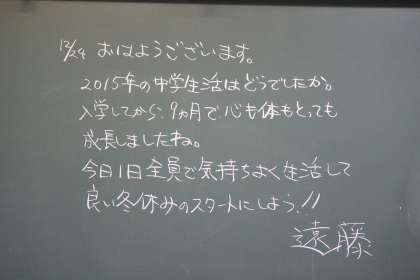 12/24 おはようございます。
2015年の中学生活はどうでしたか。
入学してから、9ヵ月で、心も体もとっても
成長しましたね。
今日1日全員で気持ちよく生活して
良い冬休みのスタートにしよう!!
遠藤